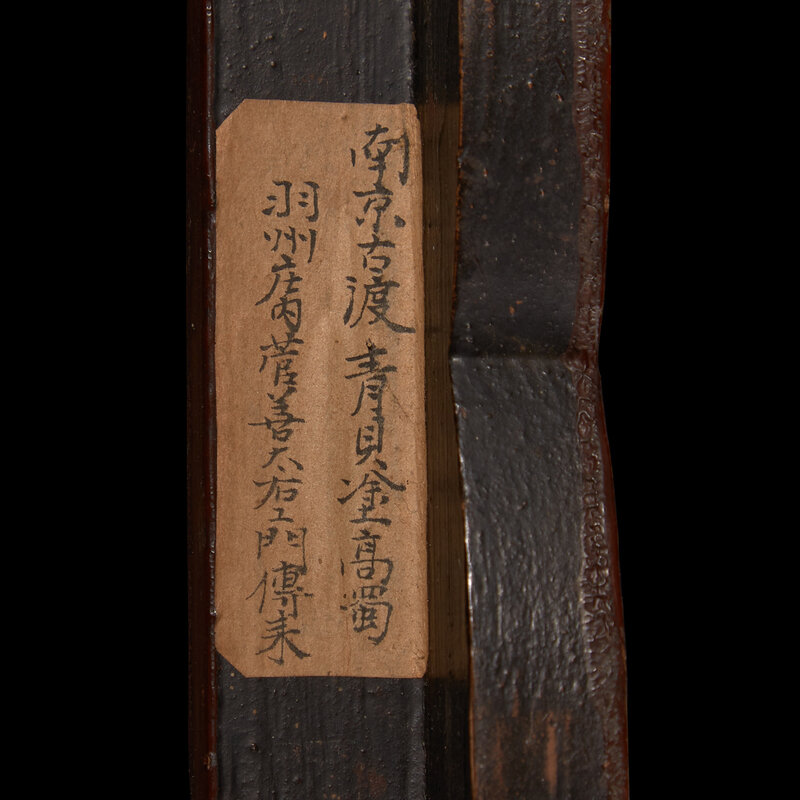 南京古渡 青貝塗高蜀
羽州庄内菅善太右エ門傳来